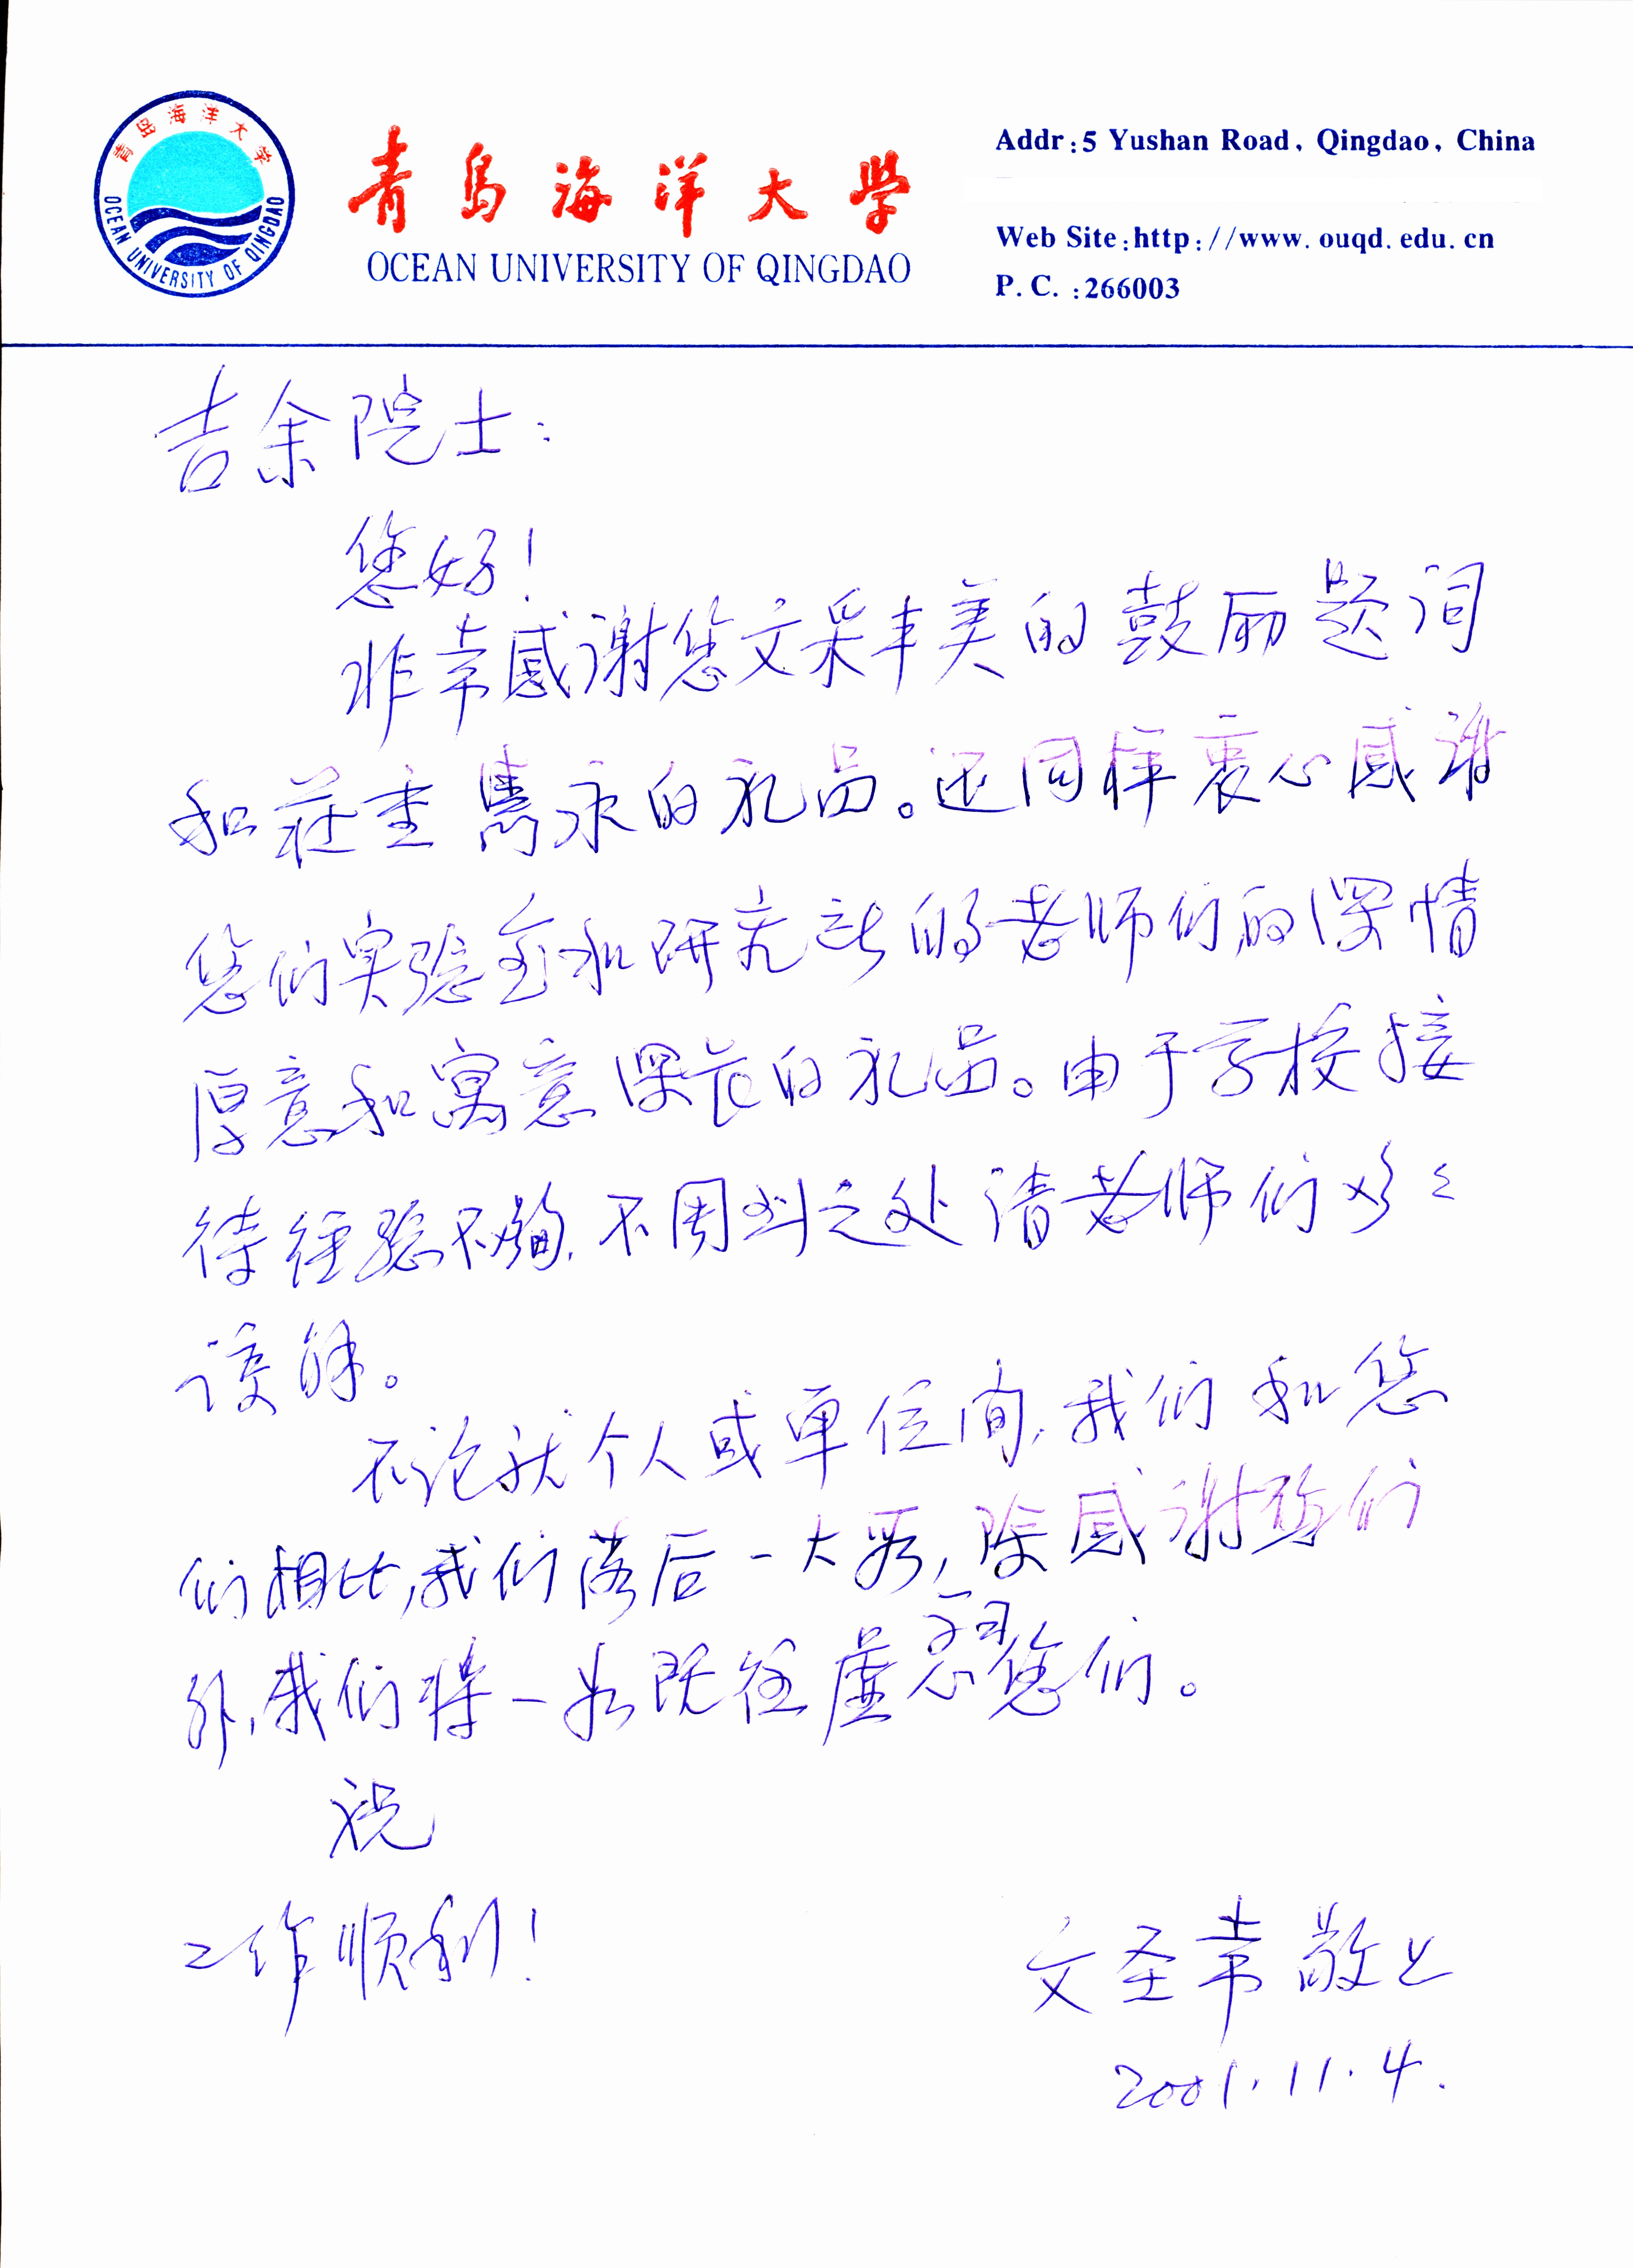 青岛海洋大学
OCEAN UNIVERSITY OF QINGDAO
青岛海洋大学
OCEAN UNIVERSITY OF QINGDAO
Addr:5 Yushan Road, Qingdao, China
Web Site:http://www.ouqd.edu.cn
P.C.:266003
吉余院士:
您好!
非常感谢您文采丰美的鼓励题词
和庄重隽永的礼品。还同样衷心感谢
您们实验室和研究站的老师们的深情
厚意和寓意深长的礼品。由于学校接
待经验不够,不周到之处请老师们多多
谅解。
不论就个人或单位间,我们和您
们相比,我们落后一大步,除感谢您们
外,我们将一如既往虚心学习您们。
祝
工作顺利!
文圣常敬上
2001.11.4.